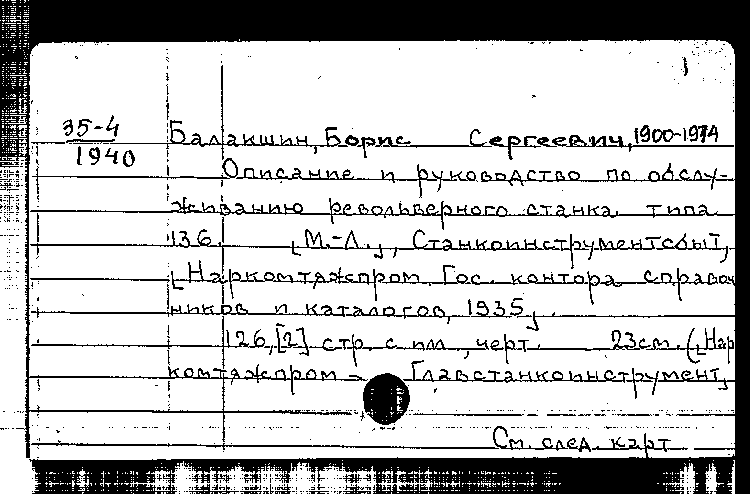 1
35-4
1940
Балакшин, Борис Сергеевич, 1900-1974
Описание и руководство по обслу-
живанию револьверного станка типа
136. [М.-Л.], Станкоинструментсбыт,
[Наркомтяжпром. Гос. контора справоч
ников и каталогов, 1935].
126,[2] стр. с илл., черт. 23см. ([Нар
комтяжпром - Главстанкоинструмент]
См. след. карт